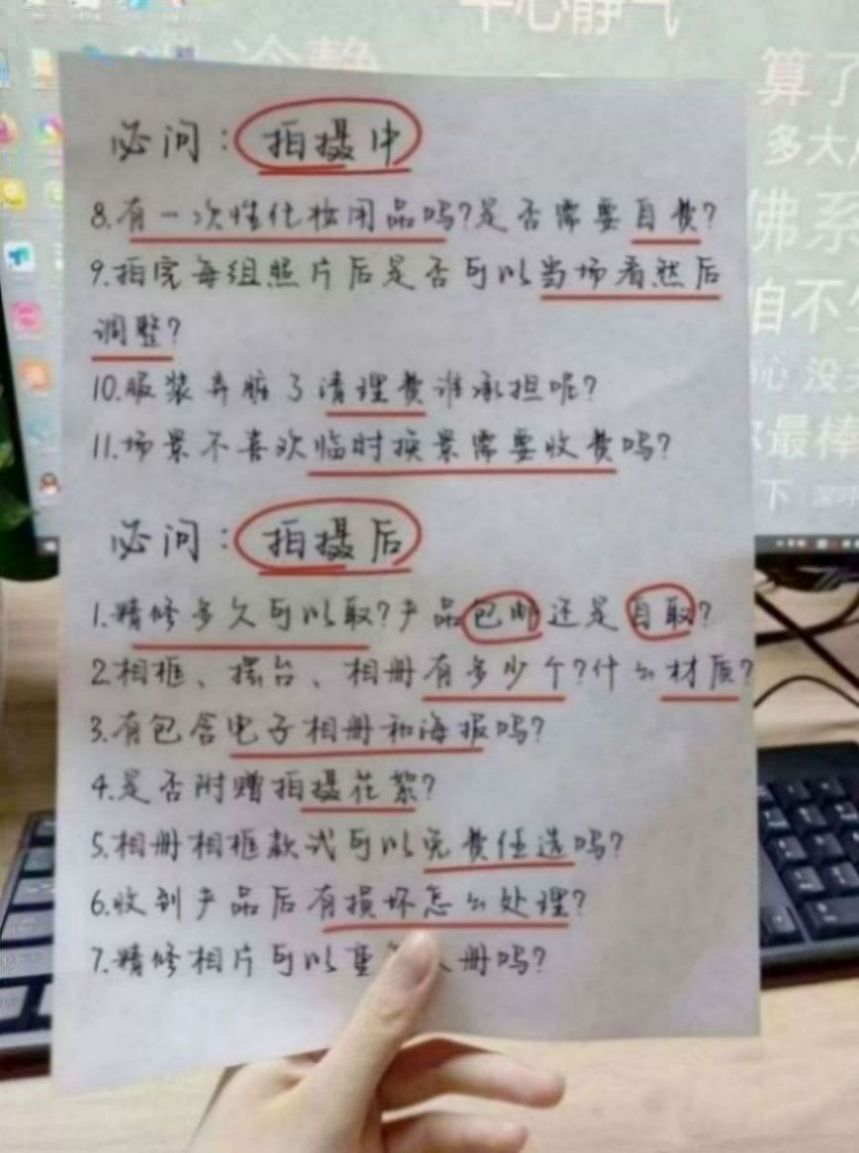 平心静气
冷静
算了
多大
佛系
咱不
没
最棒
下
必问：拍摄中
8.有一次性化妆用品吗？是否需要自费？
9.拍完每组照片后是否可以当场看然后
调整？
10.服装弄脏了清理费谁承担呢？
11.场景不喜欢临时换景需要收费吗？
必问：拍摄后
1.精修多久可以取？产品包邮还是自取？
2.相框、摆台、相册有多少个？什么材质？
3.有包含电子相册和海报吗？
4.是否附赠拍摄花絮？
5.相册相框款式可以免费任选吗？
6.收到产品后有损坏怎么处理？
7.精修相片可以重 册吗？